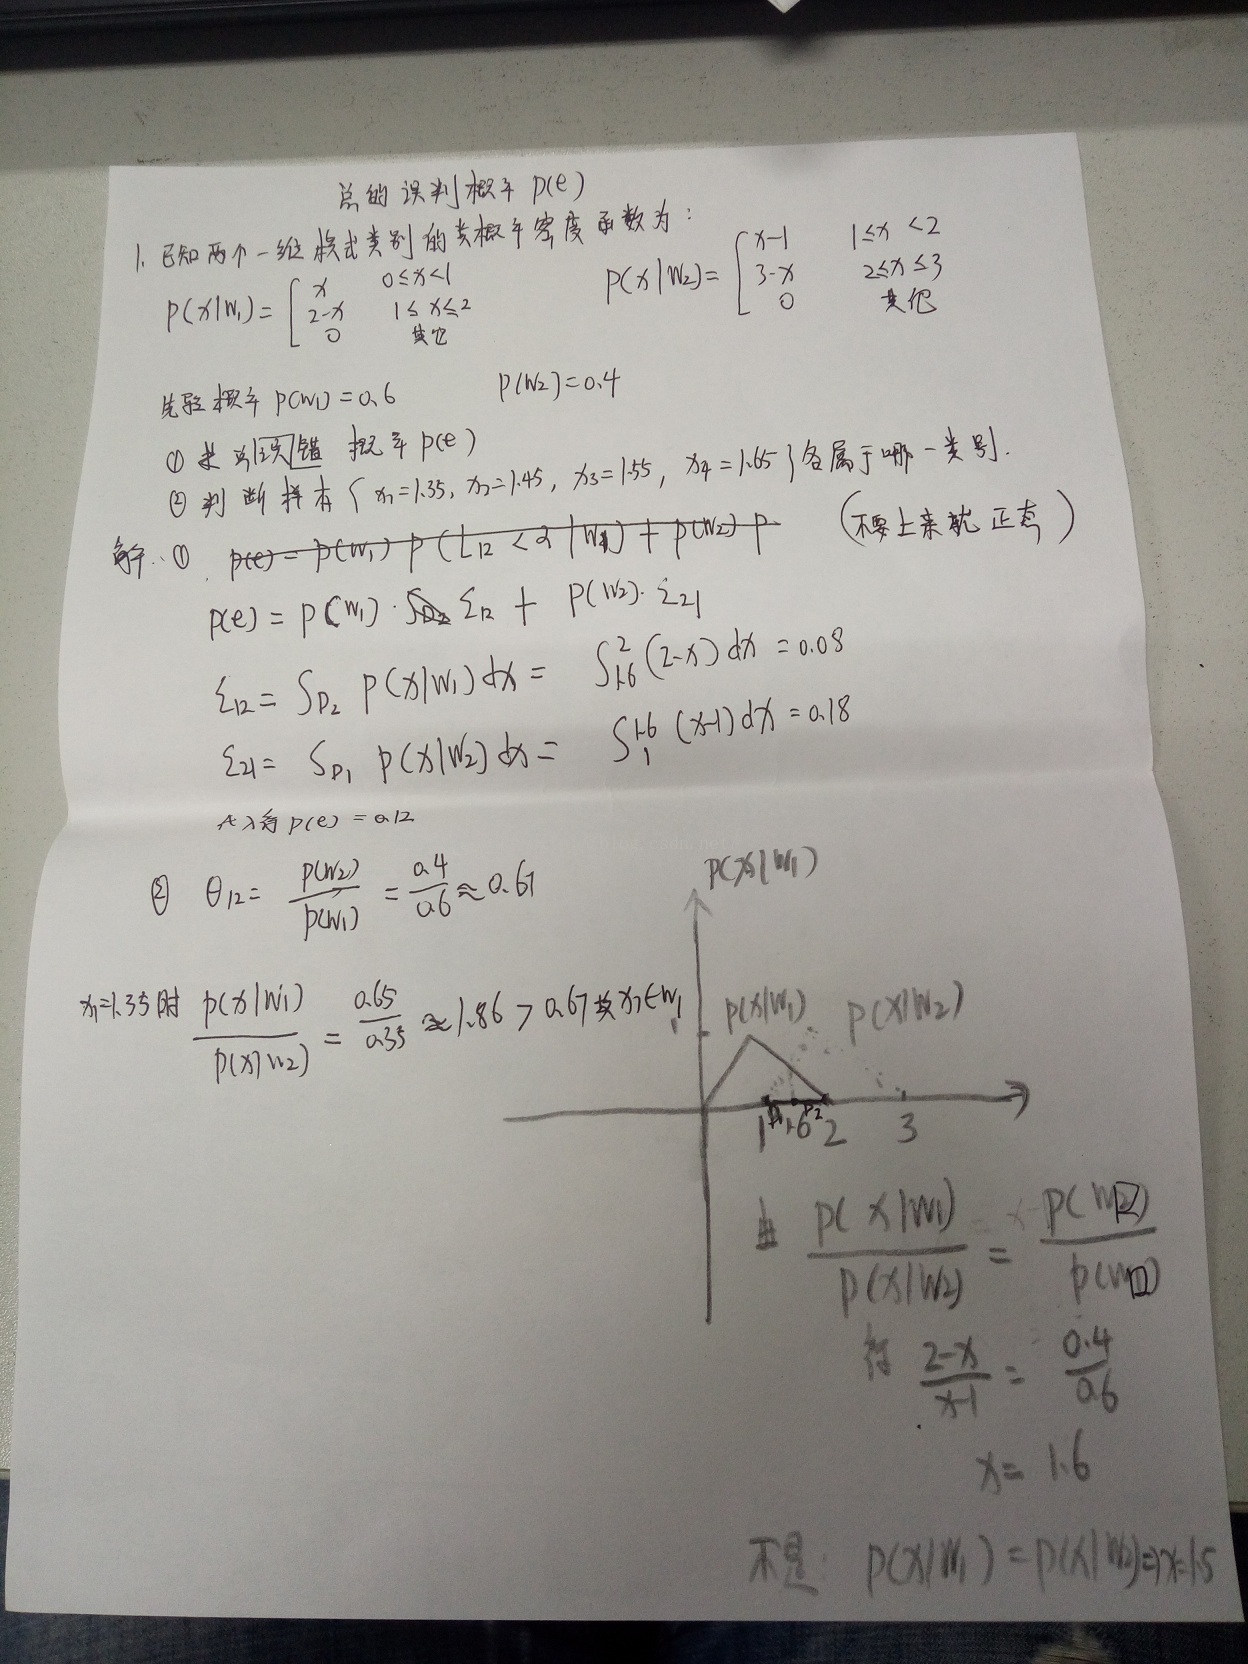 总的误判概率 P(e)
1. 已知两个一维模式类别的类概率密度函数为:
P(x|W1) = { x 0≤x<1
2-x 1≤x≤2
0 其它
P(x|W2) = { x-1 1≤x<2
3-x 2≤x≤3
0 其他
先验概率 P(W1)=0.6 P(W2)=0.4
① 求 误 错 概率 P(e)
② 判断样本{x1=1.35, x2=1.45, x3=1.55, x4=1.65}各属于哪一类别.
解: ① P(e) = P(W1) P(L12<α|W1) + P(W2) P (不要上来就 )
P(e) = P(W1)· ε12 + P(W2)· ε21
ε12 = ∫D2 P(x|W1)dx = ∫1.6 2 (2-x)dx = 0.08
ε21 = ∫D1 P(x|W2)dx = ∫1 1.6 (x-1)dx = 0.18
代入得 P(e) = 0.12
② θ12 = P(W2)/P(W1) = 0.4/0.6 ≈ 0.67
x1=1.35时 P(x|W1)/P(x|W2) = 0.65/0.35 ≈ 1.86 > 0.67 故x1∈W1
P(x|W1)
P(x|W1) P(x|W2)
1
1 D1 1.6 D2 2 3
由 P(x|W1)/P(x|W2) = P(W2)/P(W1)
得 2-x/x-1 = 0.4/0.6
x = 1.6
不是: P(x|W1) = P(x|W2) ⇒ x=1.5